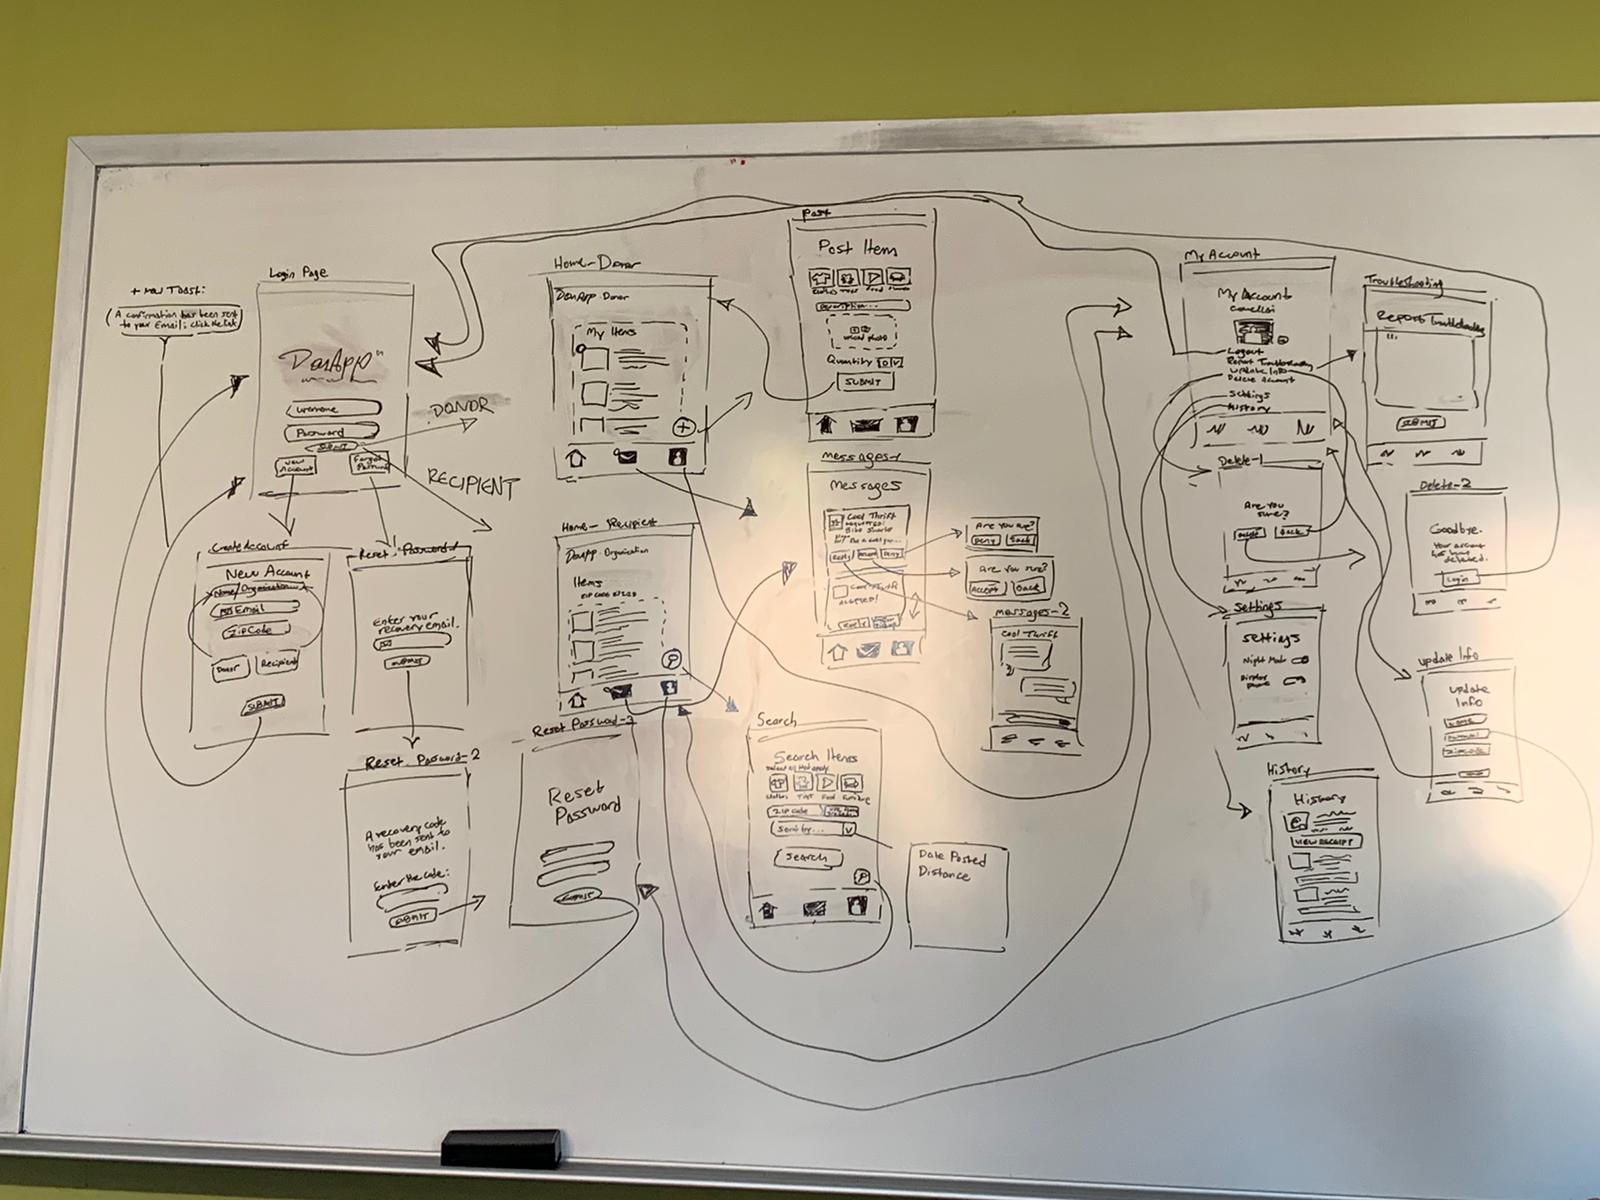 + New Toast:
(A confirmation has been sent
to your Email; click the link)
Login Page
DonApp
username
Password
SUBMIT
New
Account
Forgot
Password
DONOR
RECIPIENT
Create Account
New Account
Name/Organization
Email
Zip Code
Donor
Recipient
SUBMIT
Reset-Password-1
Enter your
recovery email.
SUBMIT
Reset-Password-2
A recovery code
has been sent to
your email.
Enter the code:
SUBMIT
Reset Password-3
Reset
Password
SUBMIT
Home-Donor
DonApp-Donor
My Items
+
Home-Recipient
DonApp-Organization
Items
Post
Post Item
Clothes
Toys
Food
Description...
upload photo
Quantity 0 v
SUBMIT
Messages-1
Messages
Cool Thrift
requested:
Reply
Accept
Deny
Cool Thrift
accepted!
Reply
Are you sure?
Deny
Back
Are you sure?
Accept
Back
Messages-2
Cool Thrift
Search
Search Items
Select all that apply
Clothes
Toys
Food
Furniture
Zip Code
Sort by... v
Search
Date Posted
Distance
My Account
My Account
Logout
Report Troubleshooting
Update Info
Delete Account
Settings
History
Troubleshooting
Report Troubleshooting
SUBMIT
Delete-1
Are you
sure?
Back
Delete-2
Goodbye.
Your account
has been
deleted.
Login
Settings
Settings
Night Mode
Update Info
Update
Info
Name
Zipcode
History
History
VIEW RECEIPT